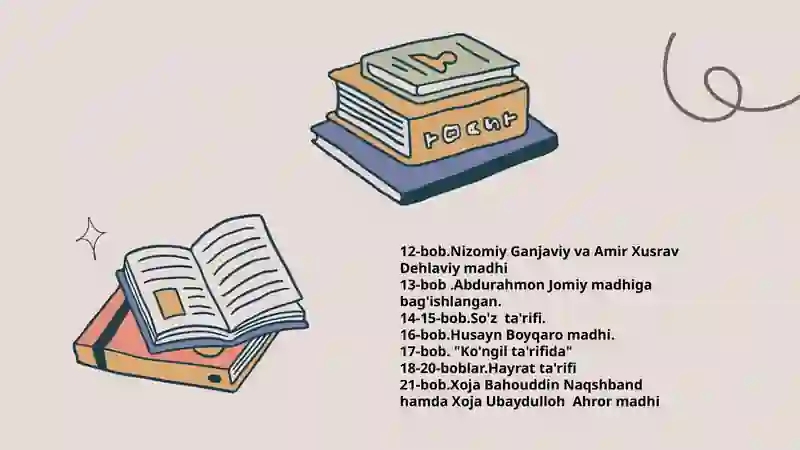 TOAST
12-bob.Nizomiy Ganjaviy va Amir Xusrav
Dehlaviy madhi
13-bob .Abdurahmon Jomiy madhiga
bag'ishlangan.
14-15-bob.So'z  ta'rifi.
16-bob.Husayn Boyqaro madhi.
17-bob. "Ko'ngil ta'rifida"
18-20-boblar.Hayrat ta'rifi
21-bob.Xoja Bahouddin Naqshband
hamda Xoja Ubaydulloh  Ahror madhi